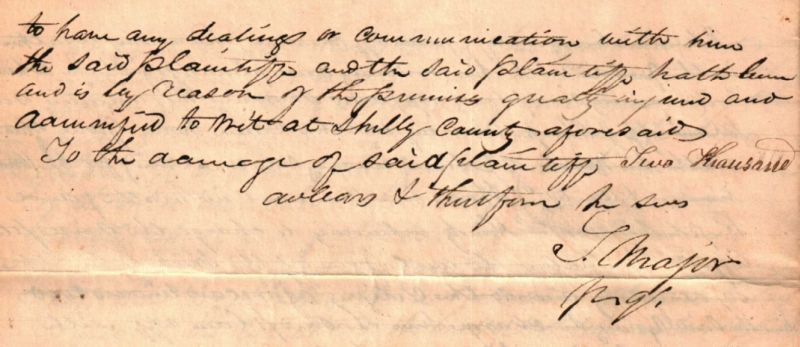 to have any dealings or communication with him
the said plaintiff and the said plaintiff hath been
and is by reason of the premises greatly injured and
damnified to wit at Shelby County aforesaid
To the damage of said plaintiff Two thousand
dollars & therefore he sues
Major